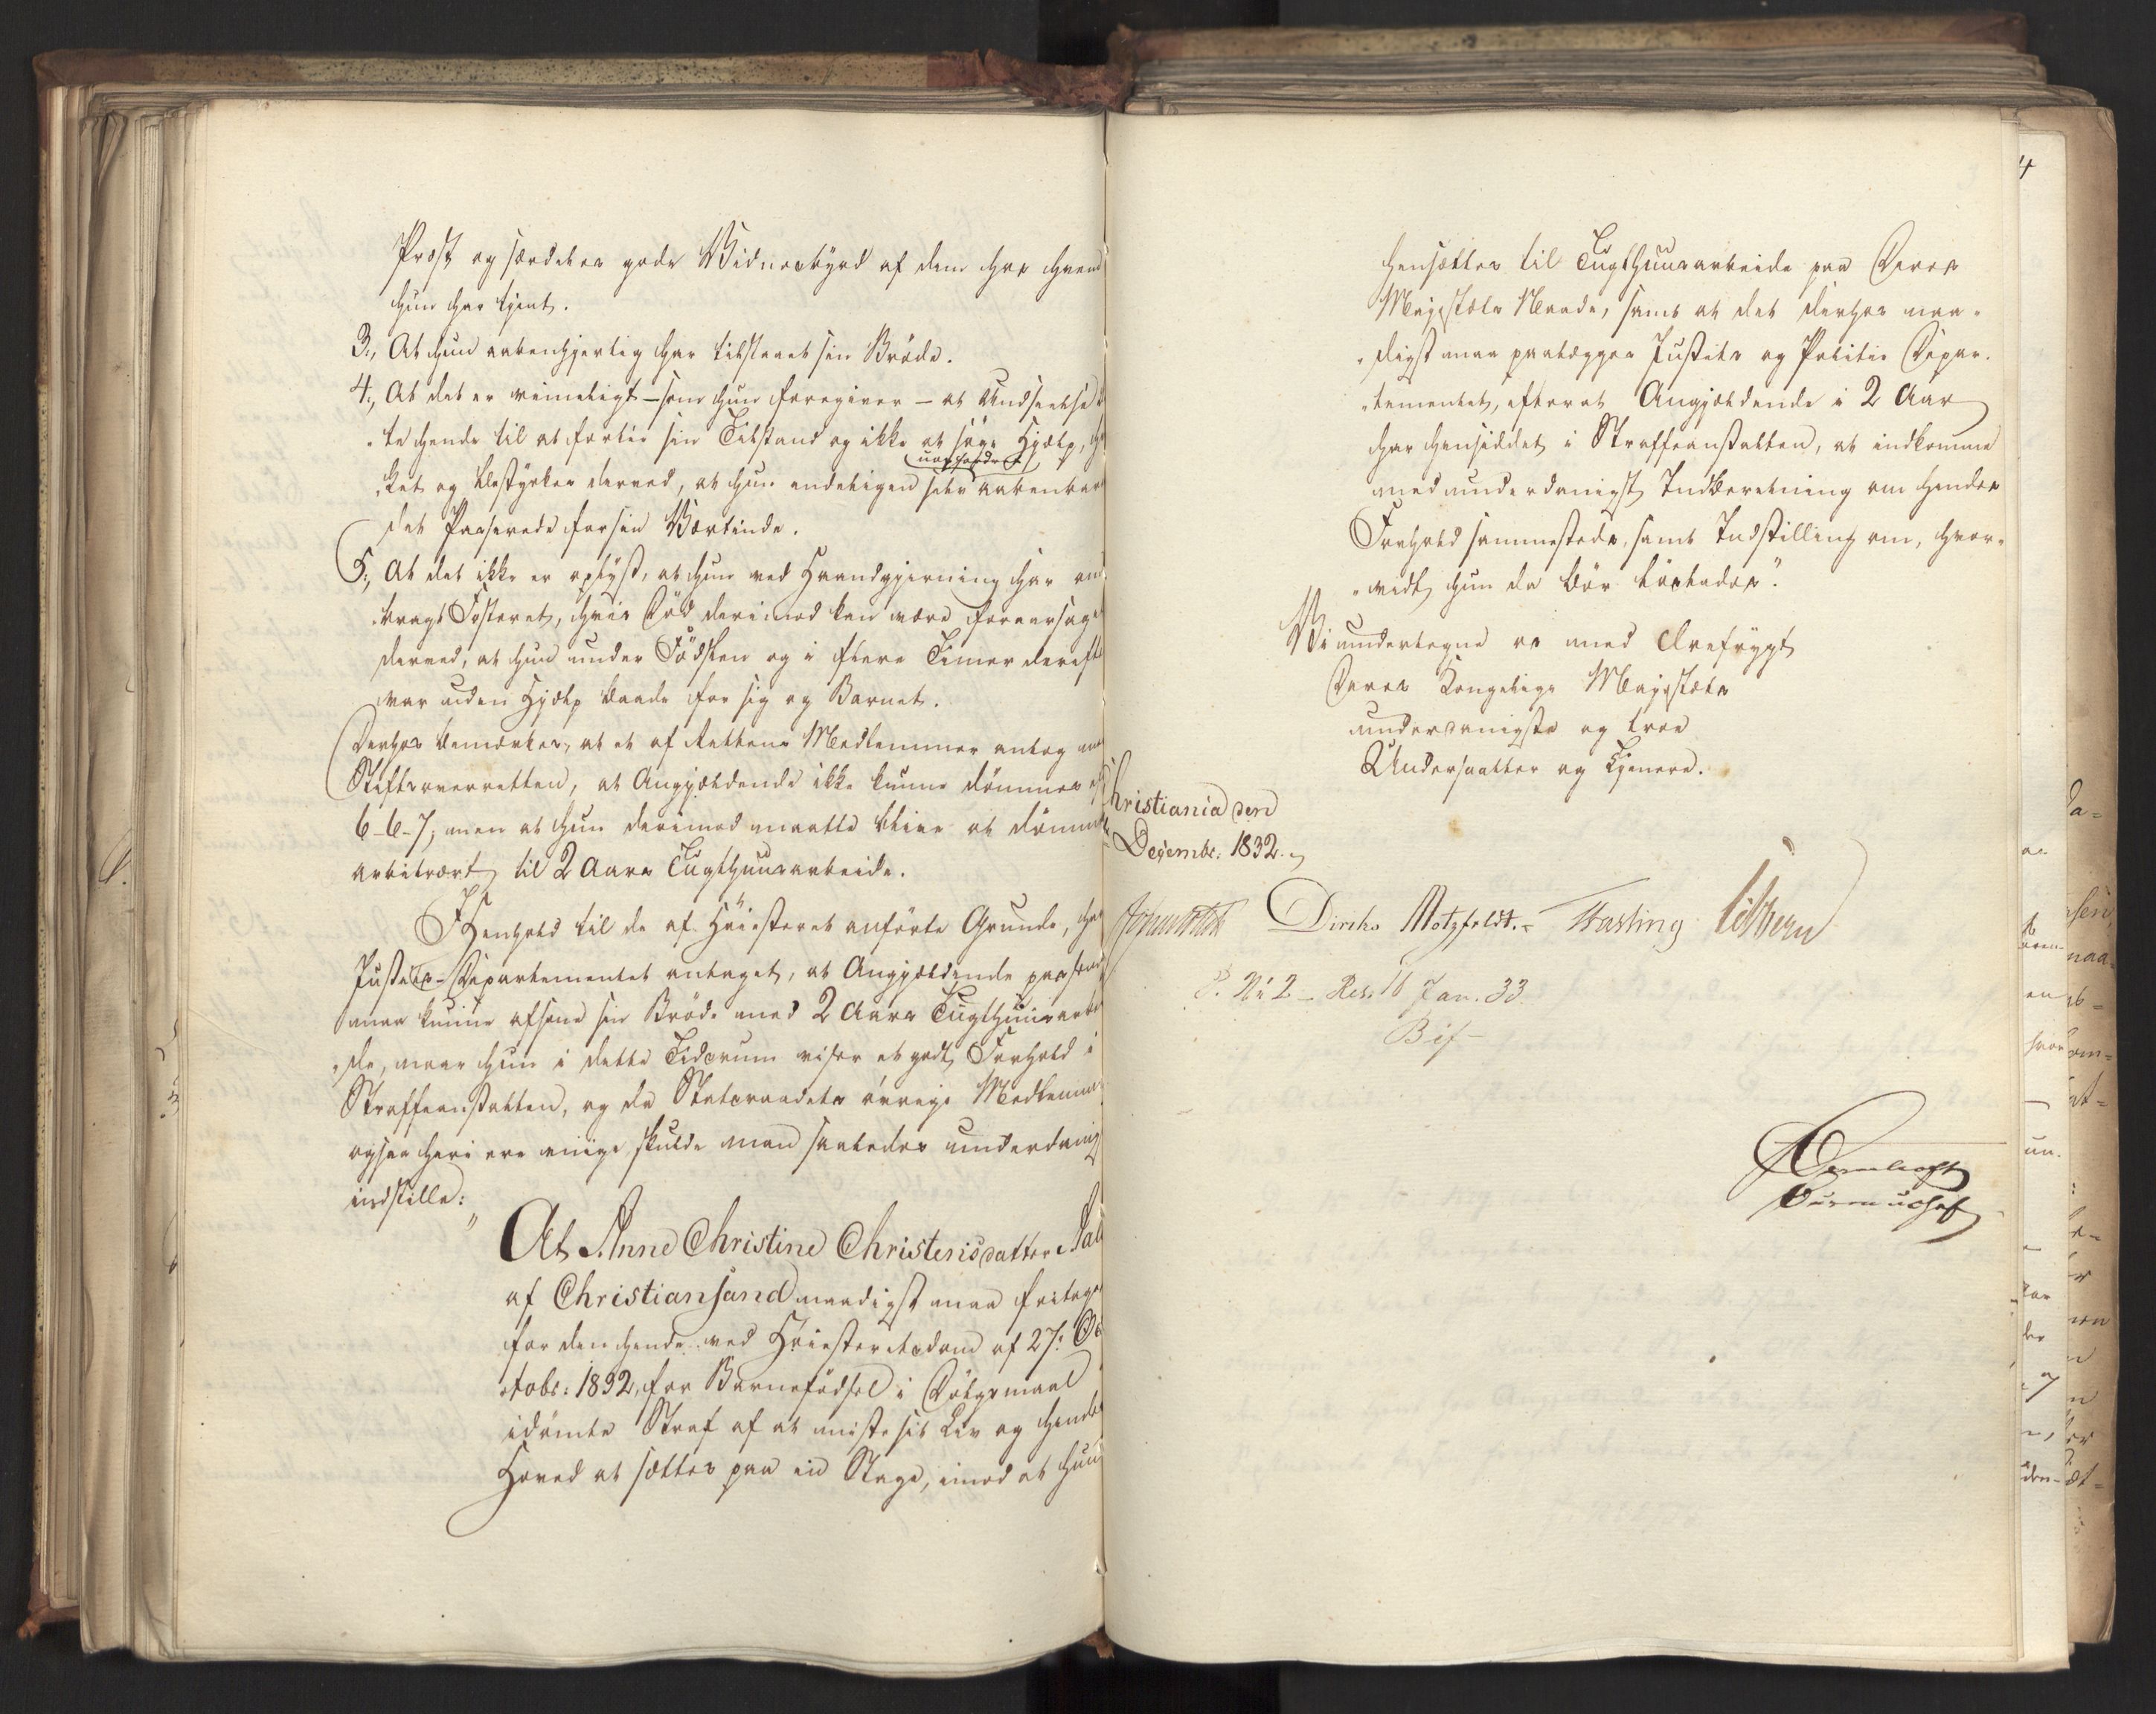 Præst og særdeles gode Vidnesbyrd af dem hos hvem
hun har tjent.
3., At hun aabenhjertig har tilstaaet sin Bröde.
4., At det er rimeligt – som hun foregiver – at Undseelse
te hende til at fortie sin Tilstand og ikke at söge Hjælp,
uopfordret
ket og bestyrkes derved, at hun endeligen selv aabenbar
det Passerede for sin Værtinde.
5., At det ikke er oplyst, at hun ved Haandgjerning har om
bragt Fosteret, hvis Död derimod kan være foraarsaget
derved, at hun under Födslen og i flere Timer dereft
var uden Hjælp baade for sig og Barnet.
Derhos bemærkes, at et af Rettens Medlemmer antog
Stiftsoverretten, at Angjældende ikke kunne dömmes
6-6-7, men at hun derimod maatte blive at dömme
arbitrært til 2 Aars Tugthuusarbeide.
I Henhold til de af Höiesteret anförte Grunde, har
Justits-Departementet antaget, at Angjældende passende
maa kunne afsone sin Bröde med 2 Aars Tugthuusarbei
de, naar hun i dette Tidsrum viser et godt Forhold i
Straffeanstalten, og da Statsraadets övrige Medlemmer
ogsaa heri ere enige, skulde man saaledes underdanig
indstille:
"At Anne Christine Christensdatter
af Christiansand naadigst maa fritages
for den hende ved Höiesteretsdom af 27: Oc
tobr: 1832, for Barnefödsel i Dölgsmaal
idömte Straf af at miste sit Liv og hendes
Hoved at sættes paa en Stage, imod at hun
hensættes til Tugthuusarbeide paa Deres
Majestæts Naade, samt at det derhos naa-
digst maa paalægges Justits og Politie Depar-
tementet, efterat Angjældende i 2 Aar
har hensiddet i Straffeanstalten, at indkomme
med underdanigst Indberetning om hendes
Forhold sammesteds, samt Indstilling om, hvor-
vidt hun da bör löslades."
Vi undertegne os med Ærefrygt
Deres Kongelige Majestæts
underdanigste og troe
Undersaatter og Tjenere.
Christiania den
Decembr: 1832.
Diriks Motzfeldt. Fasting
P. No 2 – Res. 16 Jan. 33.
Bif –
Bureauchef